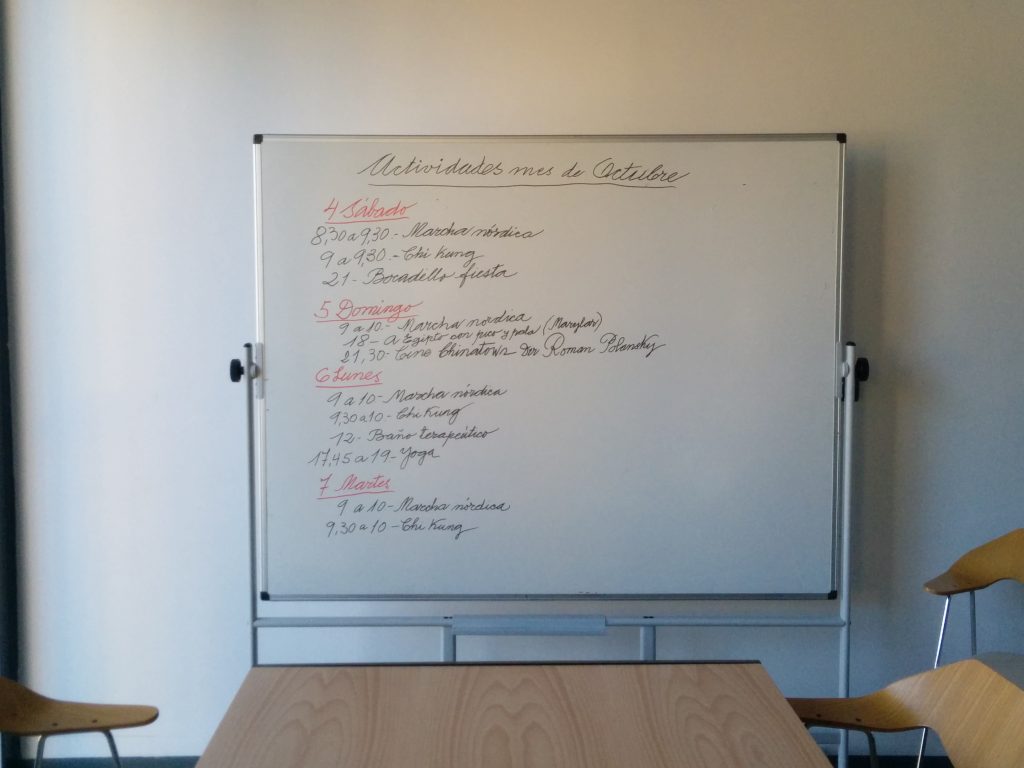 Actividades mes de Octubre
4 Sábado
8,30 a 9,30.- Marcha nórdica
9 a 9,30.- Chi Kung
21- Bocadello fiesta
5 Domingo
9 a 10.- Marcha nórdica
18- a Egipto con pico y pala (Marylar)
21,30- Cine Chinatown Por Roman Polansky
6 Lunes
9 a 10- Marcha nórdica
9,30 a 10- Chi Kung
12- Baño terapéutico
17,45 a 19- Yoga
7 Martes
9 a 10- Marcha nórdica
9,30 a 10- Chi Kung